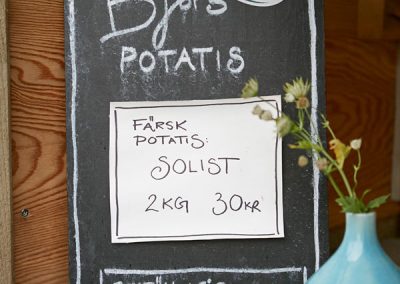 POTATIS
FÄRSK
POTATIS:
SOLIST
2KG 30KR